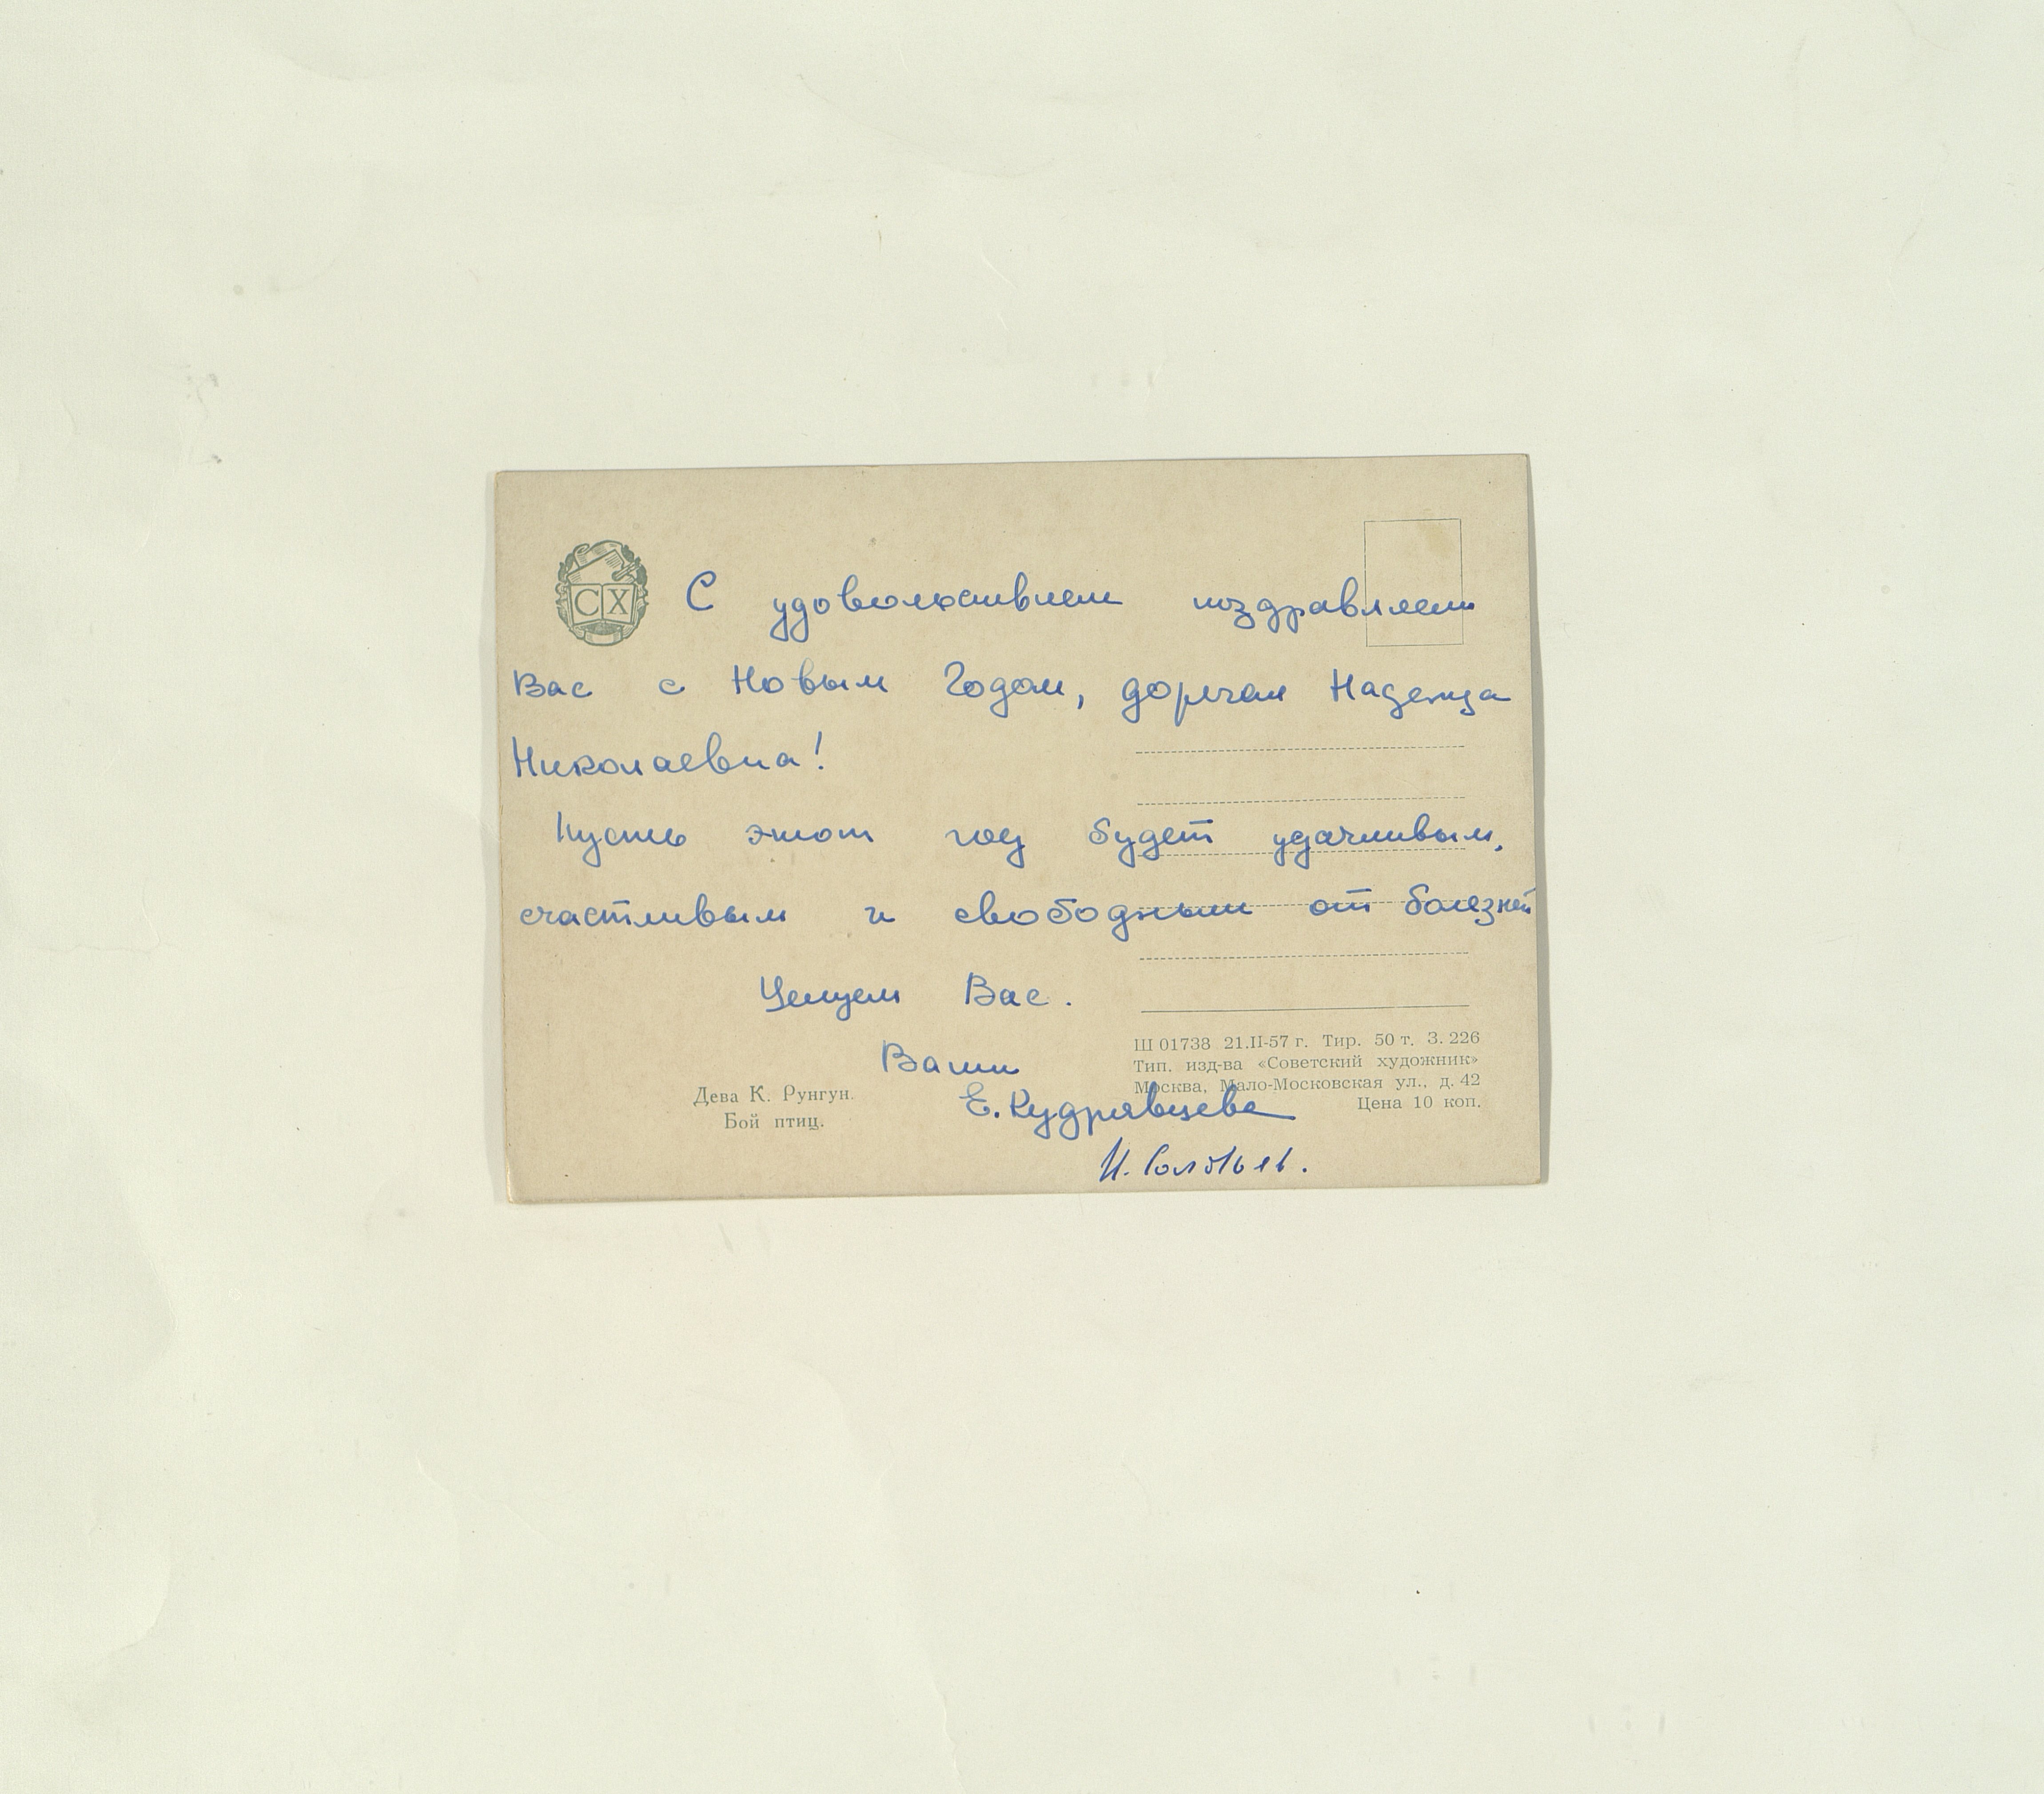 СХ
С удовольствием поздравляем
Вас с Новым Годом, дорогая Надежда
Николаевна!
Пусть этот год будет удачливым,
счастливым и свободным от болезней
Целуем Вас.
Ваши
Е. Кудрявцева
И. Соловьев.
Дева К. Рунгун.
Бой птиц.
Ш 01738 21.II-57 г. Тир. 50 т. З. 226
Тип. изд-ва «Советский художник»
Москва, Мало-Московская ул., д. 42
Цена 10 коп.